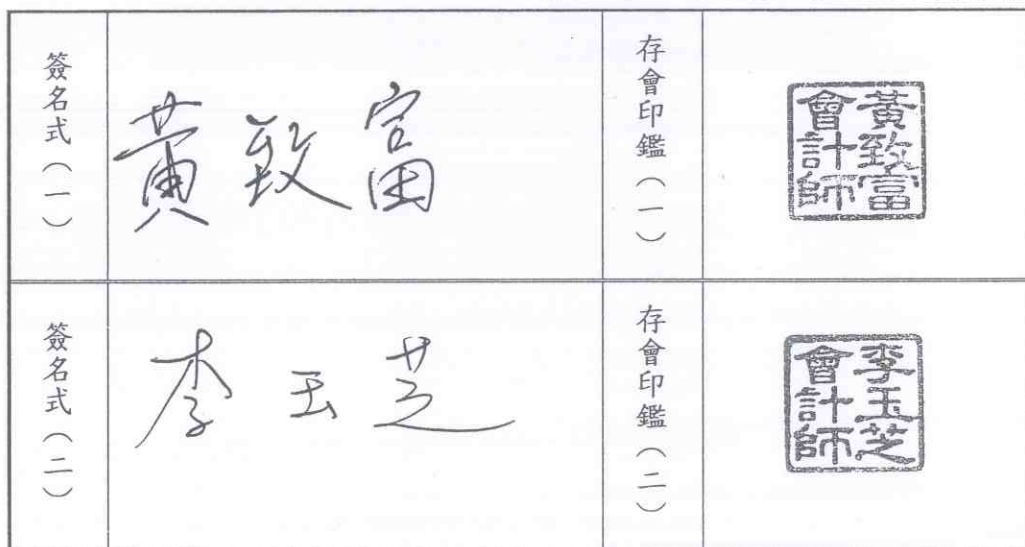 簽名式（一）
黃致富
存會印鑑（一）
黃致富
會計師
簽名式（二）
李玉芝
存會印鑑（二）
李玉芝
會計師